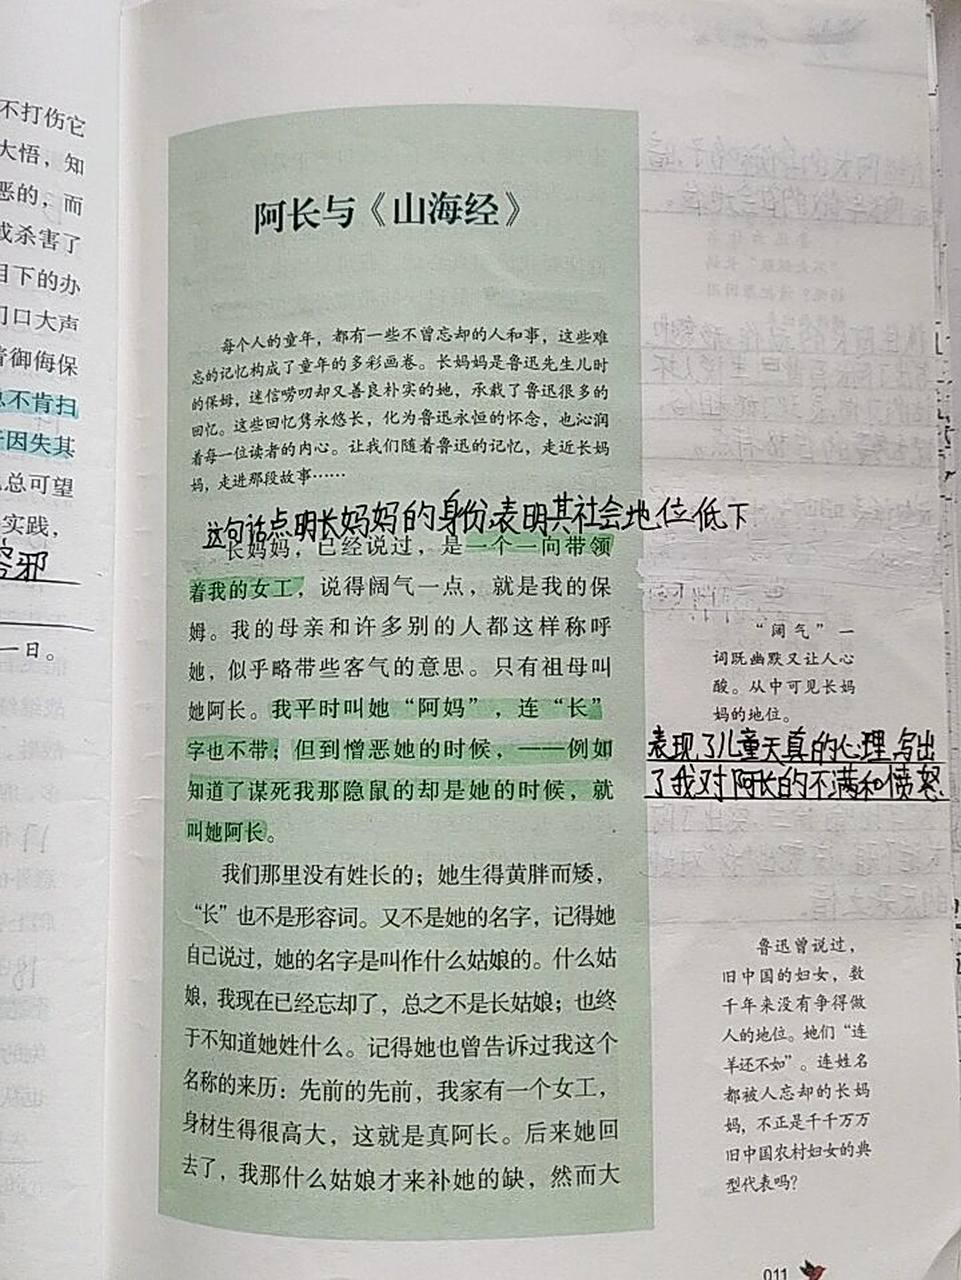 不打伤它
大悟，知
恶的，而
或杀害了
目下的办
门口大声
御侮保
不肯扫
因失其
总可望
实践，
邪
一日。
阿长与《山海经》
每个人的童年，都有一些不曾忘却的人和事，这些难
忘的记忆构成了童年的多彩画卷。长妈妈是鲁迅先生儿时
的保姆，迷信唠叨却又善良朴实的她，承载了鲁迅很多的
回忆。这些回忆隽永悠长，化为鲁迅永恒的怀念，也沁润
着每一位读者的内心。让我们随着鲁迅的记忆，走近长妈
妈，走进那段故事……
这句话点明长妈妈的身份，表明其社会地位低下
长妈妈，已经说过，是一个一向带领
着我的女工，说得阔气一点，就是我的保
姆。我的母亲和许多别的人都这样称呼
她，似乎略带些客气的意思。只有祖母叫
她阿长。我平时叫她“阿妈”，连“长”
字也不带；但到憎恶她的时候，——例如
知道了谋死我那隐鼠的却是她的时候，就
叫她阿长。
我们那里没有姓长的；她生得黄胖而矮，
“长”也不是形容词。又不是她的名字，记得她
自己说过，她的名字是叫作什么姑娘的。什么姑
娘，我现在已经忘却了，总之不是长姑娘；也终
于不知道她姓什么。记得她也曾告诉过我这个
名称的来历：先前的先前，我家有一个女工，
身材生得很高大，这就是真阿长。后来她回
去了，我那什么姑娘才来补她的缺，然而大
“阔气”一
词既幽默又让人心
酸。从中可见长妈
妈的地位。
表现了儿童天真的心理，写出
了我对阿长的不满和愤怒
鲁迅曾说过，
旧中国的妇女，数
千年来没有争得做
人的地位。她们“连
羊还不如”。连姓名
都被人忘却的长妈
妈，不正是千千万万
旧中国农村妇女的典
型代表吗？
011